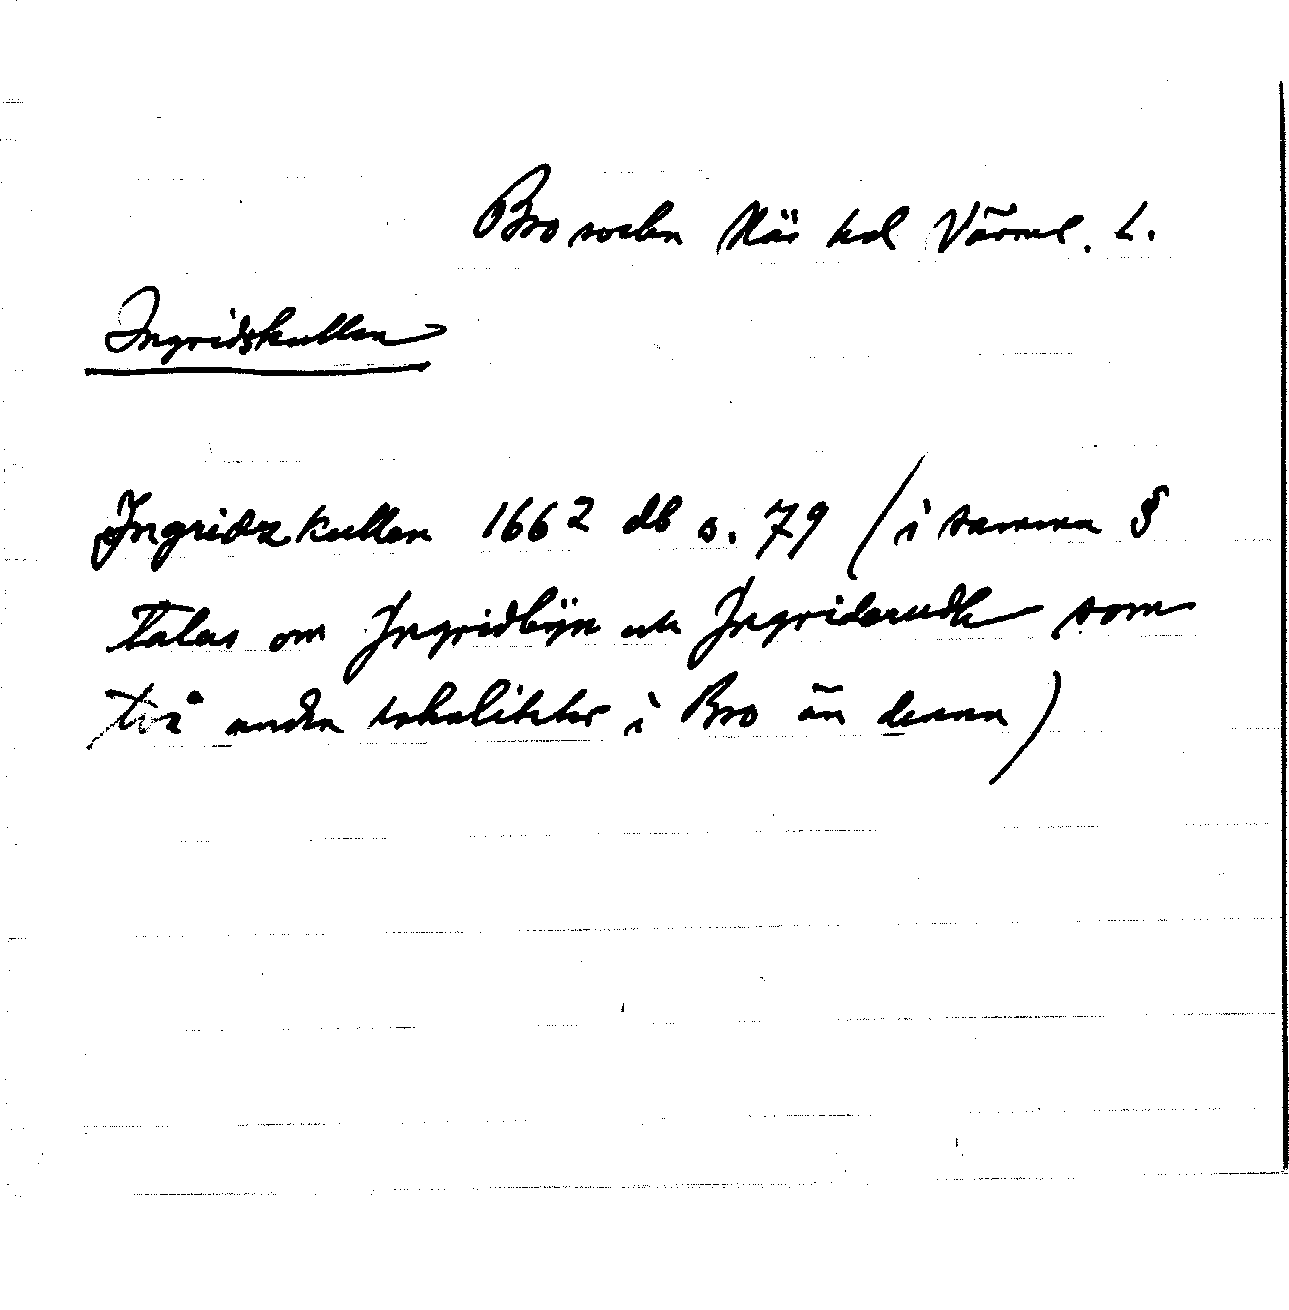 Bro socken Näs hd Värml. l.
Ingridskullen
Ingridzkullen 1662 db s. 79 (i samma §
talas om Ingridbÿn och Ingridzrudh som
två andra lokaliteter i Bro än denna)